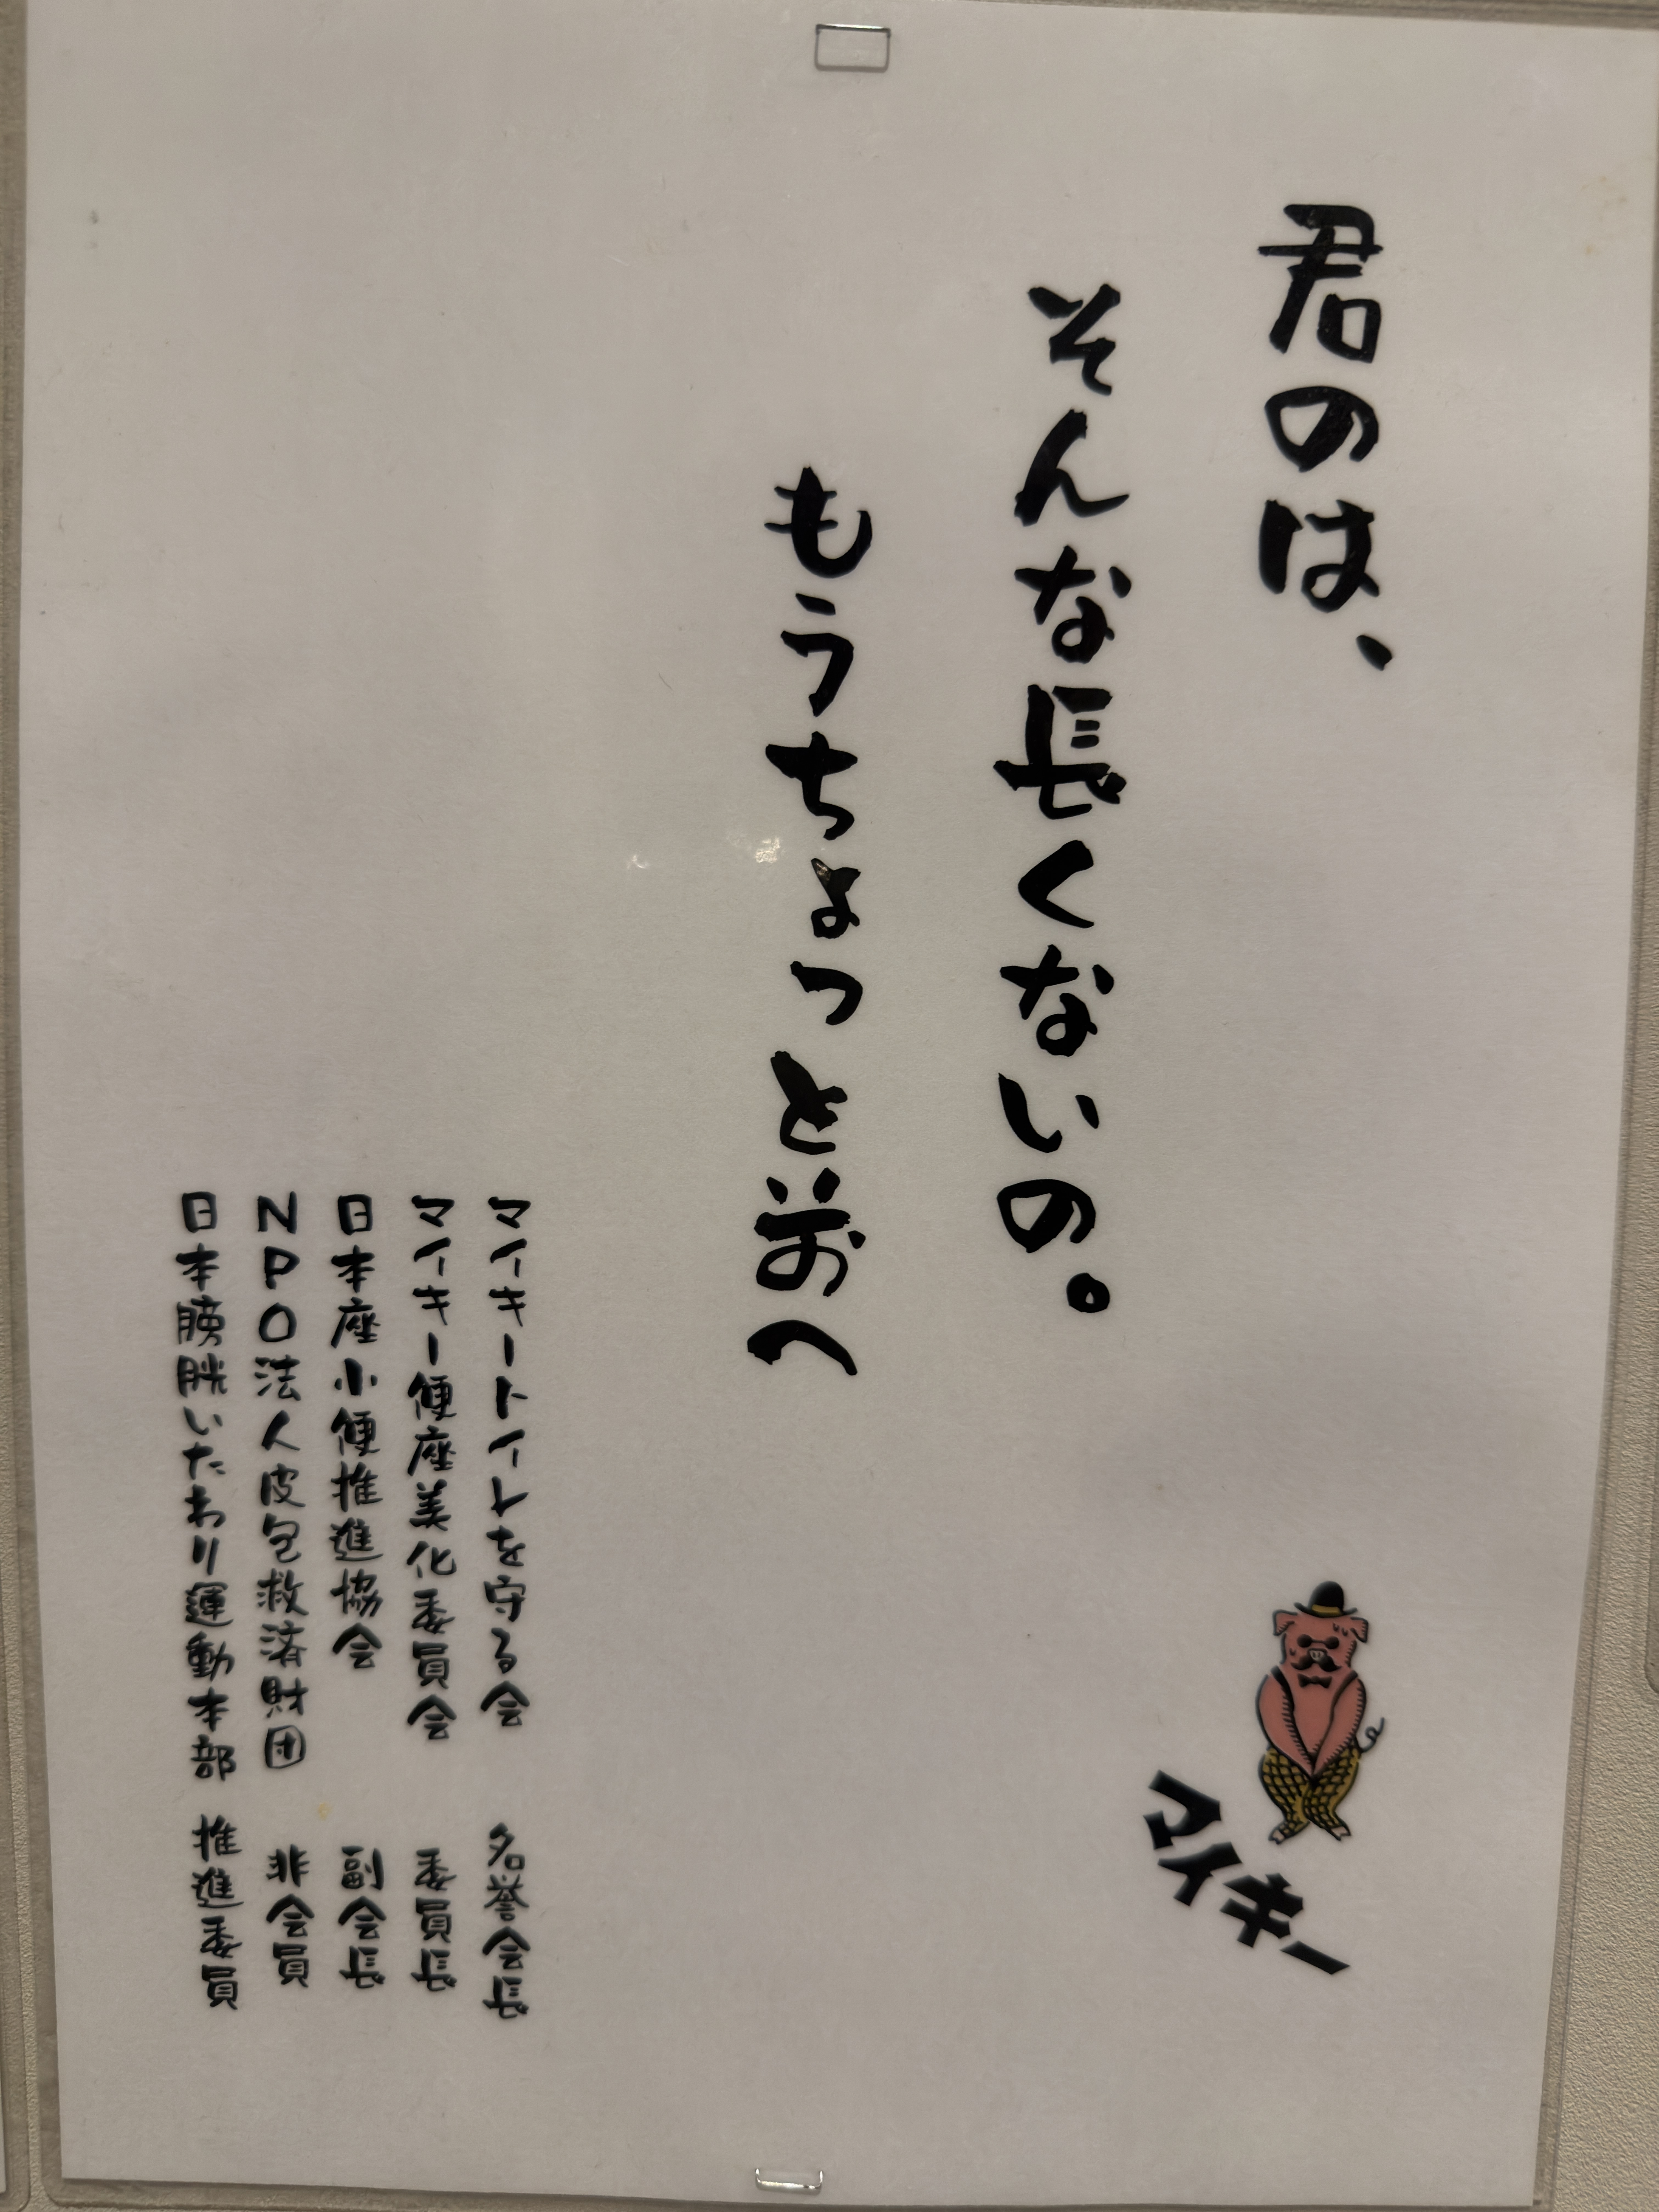 君のは、
そんな長くないの。
もうちょっと前へ
マイキー
マイキートイレを守る会 名誉会長
マイキー便座美化委員会 委員長
日本座小便推進協会 副会長
NPO法人皮包救済財団 非会員
日本膀胱いたわり運動本部 推進委員